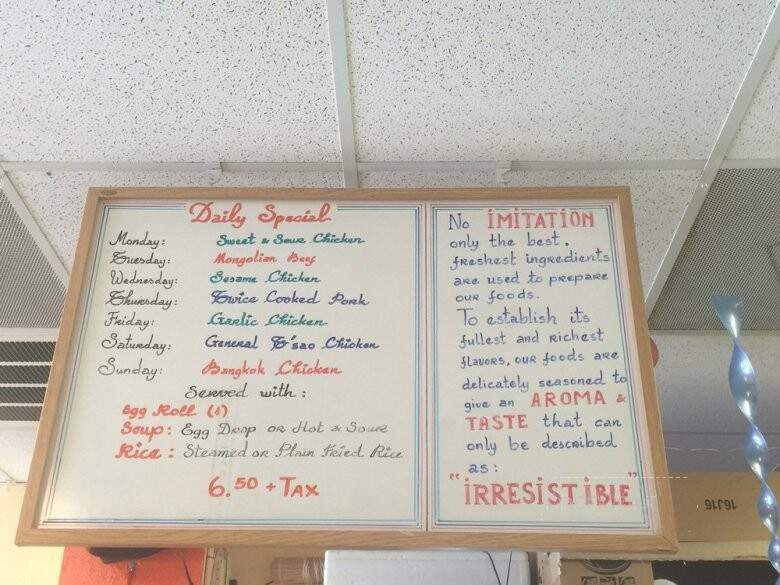 Daily Special
Monday: Sweet & Sour Chicken
Tuesday: Mongolian Beef
Wednesday: Sesame Chicken
Thursday: Twice Cooked Pork
Friday: Garlic Chicken
Saturday: General T'sao Chicken
Sunday: Bangkok Chicken
Served with:
Egg Roll (1)
Soup: Egg Drop or Hot & Sour
Rice: Steamed or Plain Fried Rice
6.50 + TAX
No IMITATION
only the best.
freshest ingredients
are used to prepare
our foods.
To establish its
fullest and richest
flavors, our foods are
delicately seasoned to
give an AROMA &
TASTE that can
only be described
as:
"IRRESISTIBLE"
16J16